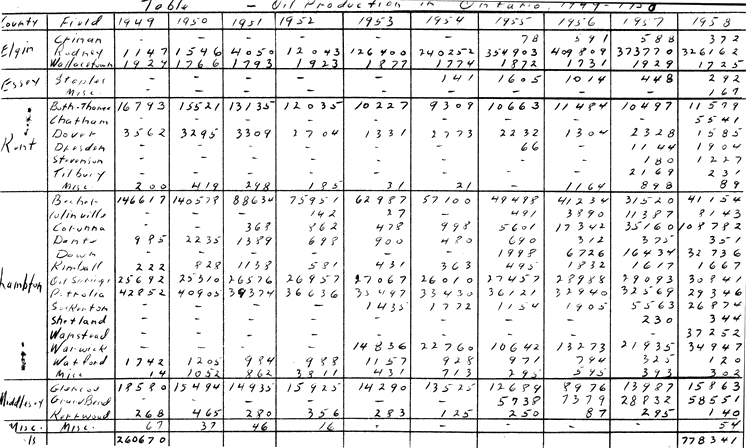 Table - Oil Production in Ontario, 1949-1958
County Field 1949 1950 1951 1952 1953 1954 1955 1956 1957 1958
Crinan - - - - - - 78 591 588 372
Elgin Rodney 1147 1546 4050 12043 126400 240252 354903 409809 373770 326162
Wallacetown 1924 1766 1793 1923 1877 1774 1872 1731 1929 1725
Essex Staples - - - - - 141 1605 1014 448 292
Misc. - - - - - - - - - 167
Both.-Thames 16793 15521 13135 12035 10227 9309 10663 11484 10497 11579
Chatham - - - - - - - - - 5541
Dover 3562 3295 3309 2704 1331 2773 2232 1304 2328 1585
Kent Dresden - - - - - - 66 - 1144 1904
Stevenson - - - - - - - - 180 1227
Tilbury - - - - - - - - 2169 231
Misc 200 419 298 185 31 21 - 1164 898 89
Becher 146617 140578 88634 75951 62987 57100 49498 41234 31520 41154
- - - 142 27 - 491 3890 11387 8143
Corunna - - 368 362 478 998 5601 17342 35160 108782
Dante 985 2235 1389 698 900 480 690 312 375 351
Dawn - - - - - - 1998 6726 16434 32736
Kimball 222 828 1138 581 431 363 495 1832 1617 1667
Lambton Oil Springs 25692 25310 26576 26957 27067 26010 27457 28988 29093 30841
Petrolia 42852 40905 39374 36636 35497 33430 36121 32940 32569 29346
- - - - 1435 1772 1154 1905 5563 26874
Shetland - - - - - - - - 230 344
Wanstead - - - - - - - - - 37252
Warwick - - - - 14836 22760 10642 13273 21935 34947
Watford 1742 1205 984 988 1157 928 971 794 325 120
Misc 14 1052 862 3811 431 713 295 595 393 302
Glencoe 18580 15494 14935 15925 14290 13525 12689 8976 13987 15863
Middlesex Grand Bend - - - - - - 5738 7379 28832 58551
Kerwood 268 465 280 356 283 125 250 87 295 140
Misc. Misc. 67 37 46 16 - - - - - 54
ls 260670 778341